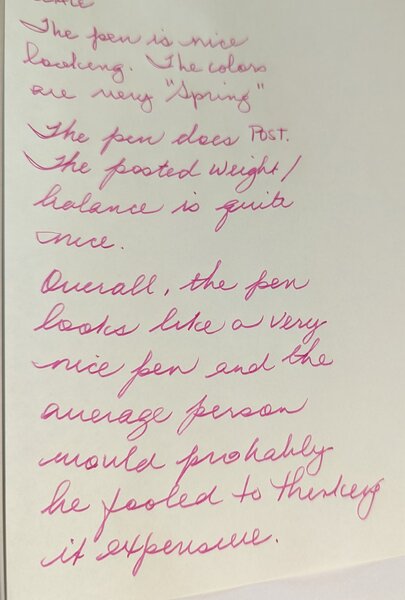 The pen is nice
looking. The colors
are very "Spring"
The pen does POST.
The posted weight/
balance is quite
nice.
Overall, the pen
looks like a very
nice pen and the
average person
would probably
be fooled to thinking
it expensive.